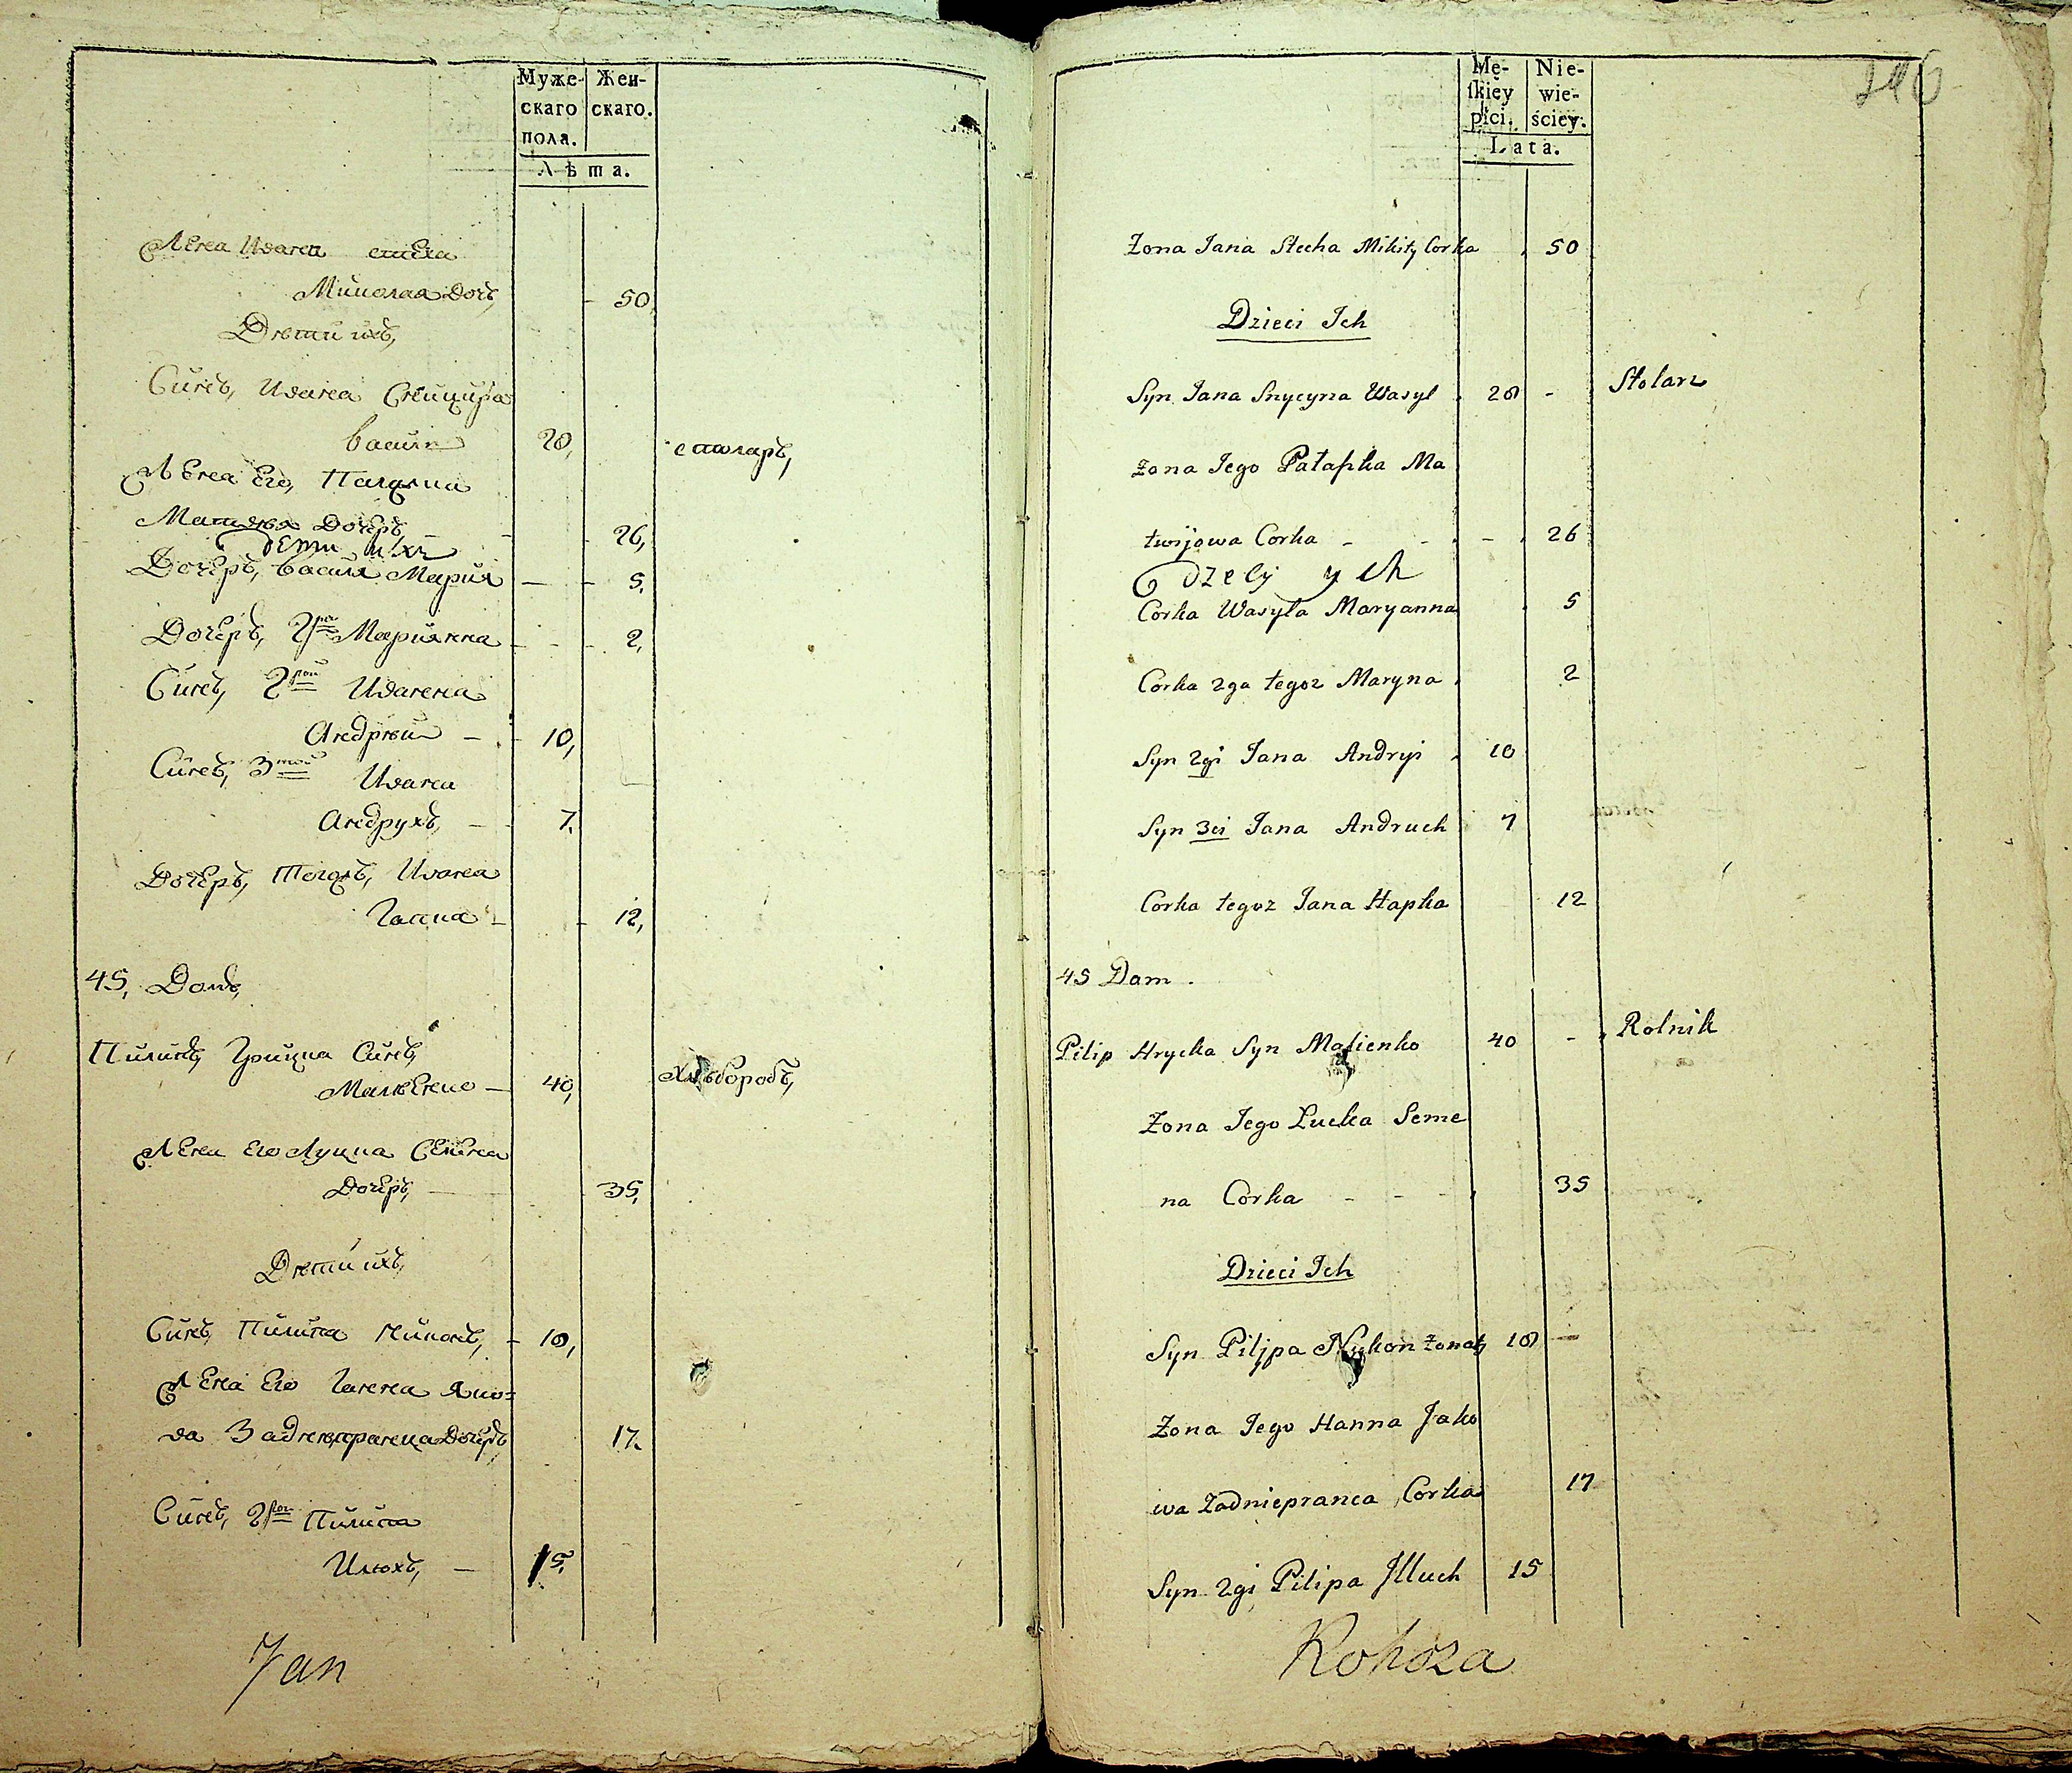 Муже-
скаго
пола.
Жен-
скаго.
Лѣта.
Жена Ивана Стеха
Миколая Дочь, - 50,
Дѣти ихъ,
Сынъ, Ивана Сницира
Василь 28, столаръ,
Жена Его, Палажка
Матвѣя Дочеръ, - - 26,
дети ихъ
Дочеръ, Василя Мария — - 5,
Дочеръ, 2рая Мариянна - - - 2,
Сынъ, 2рой Ивана
Андрѣй - - 10,
Сынъ, 3той Ивана
Андрухъ, - - 7,
Дочеръ, тогожъ, Ивана
Гапка - - 12,
45, Домъ,
Пилипъ, Грицка Сынъ,
Малѣенко — 40, Хлѣборобъ,
Жена Его Луцка Семена
Дочеръ, — 35,
Дѣти ихъ,
Сынъ, Пилипа Никонъ, - 18,
Жена Его Ганна Яко=
ва Заднепранца Дочеръ 17,
Сынъ, 2рой Пилипа
Илюхъ, — 15,
Jan
Mę-
ſkiey
płci.
Nie-
wie-
ściey.
Lata.
Zona Jana Stecha Mikity Corka 50
Dzieci Ich
Syn Jana Snycyra Wasyl 28 - Stolarz
Zona Jego Patapka Ma
twijowa Corka - - - 26
dzeci ych
Corka Wasyla Maryanna 5
Corka 2ga tegoz Maryna 2
Syn 2gi Jana Andryi 10
Syn 3ci Jana Andruch 7
Corka tegoz Jana Hapka 12
45 Dam.
Pilip Hrycka Syn Malienko 40 - Rolnik
Zona Jego Lucka Seme
na Corka - - - 35
Dzieci Ich
Syn Pilipa Nykon Zonaty 18 —
Zona Jego Hanna Jako
wa Zadniepranca Corka 17
Syn 2gi Pilipa Illuch 15
Rohoza